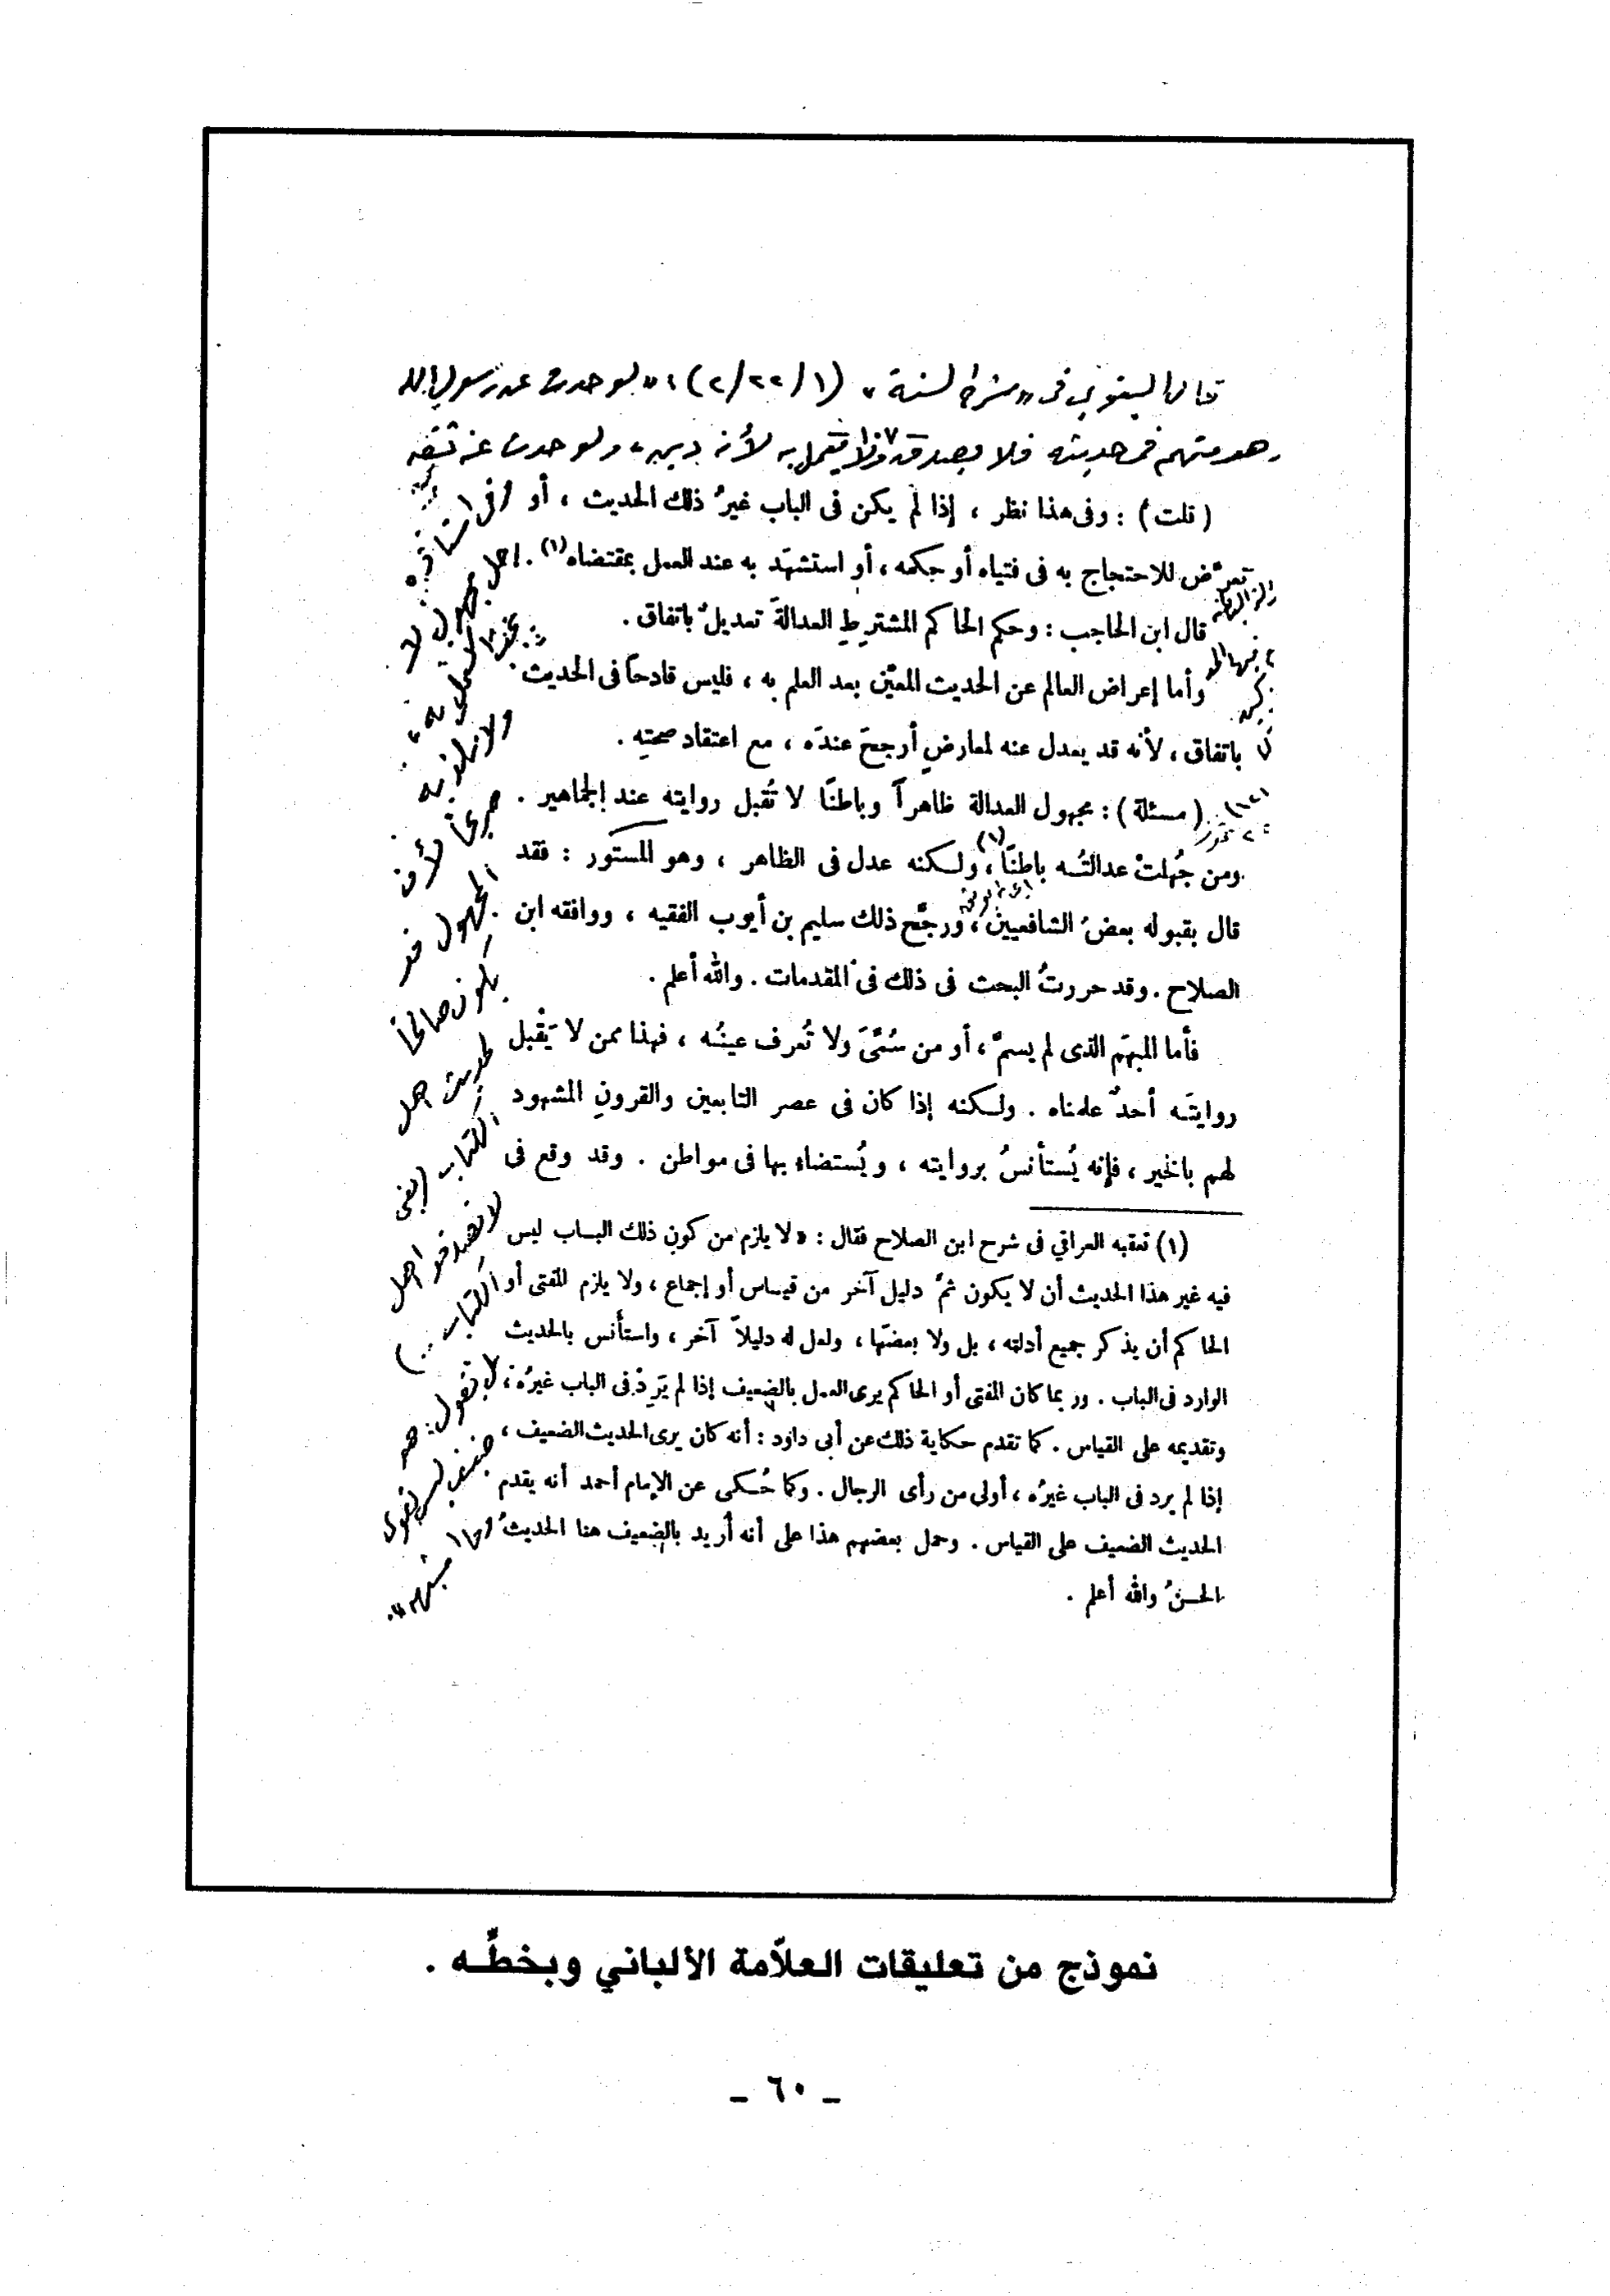 قال البغوي في « شرح السنة » (١/٢٢/٢) : « لو حدث عن رسول الله
وهو متهم في حديثه فلا يصدق ولا يعمل به لأنه دين ، ولو حدث عن ثقة
(قلت) : وفى هذا نظر ، إذا لم يكن فى الباب غيرُ ذلك الحديث ، أو
تعرَّض للاحتجاج به فى فتياه أو حكمه ، أو استشهَد به عند العمل بمقتضاه(١) .
قال ابن الحاجب : وحكم الحاكم المشترِطِ العدالةَ تعديلٌ باتفاق .
وأما إعراض العالم عن الحديث المعيَّن بعد العلم به ، فليس قادحاً فى الحديث
باتفاق ، لأنه قد يعدل عنه لمعارضٍ أرجحَ عندَه ، مع اعتقاد صحتِه .
(مسئلة) : مجهول العدالة ظاهراً وباطنًا لا تُقبل روايته عند الجماهير .
ومن جُهلتْ عدالتُـه باطنًا ، ولـكنه عدل فى الظاهر ، وهو المستور : فقد
(١)
قال بقبوله بعضُ الشافعيين ، ورجَّح ذلك سليم بن أيوب الفقيه ، ووافقه ابن
الصلاح . وقد حررتُ البحث فى ذلك فى المقدمات . والله أعلم .
فأما المبهَم الذى لم يسمَّ ، أو من سُمِّىَ ولا تُعرف عينُـه ، فهذا ممن لا يَقْبل
روايتَـه أحدٌ علمناه . ولـكنه إذا كان فى عصر التابعين والقرونِ المشهود
لهم بالخير ، فإنه يُستأنسُ بروايته ، ويُستضاء بها فى مواطن . وقد وقع فى
(١) تعقبه العراقي فى شرح ابن الصلاح فقال : « لا يلزم من كون ذلك البـاب ليس
فيه غير هذا الحديث أن لا يكون ثمَّ دليل آخر من قيـاس أو إجماع ، ولا يلزم المفتى أو
الحاكم أن يذكر جميع أدلته ، بل ولا بعضَها ، ولعل له دليلاً آخر ، واستأنس بالحديث
الوارد فى الباب . وربما كان المفتى أو الحاكم يرى العمل بالضعيف إذا لم يَرِدْ فى الباب غيرُه ،
وتقديمه على القياس . كما تقدم حكاية ذلك عن أبى داود : أنه كان يرى الحديث الضعيف ،
إذا لم يرد فى الباب غيرُه ، أولى من رأى الرجال . وكما حُـكى عن الإمام أحمد أنه يقدم
الحديث الضعيف على القياس . وحمل بعضهم هذا على أنه أُريد بالضعيف هنا الحديثُ
الحسنُ والله أعلم .
ولا نلغو به
صريحًا لأن
المجهول قد
يكون صالحًا
لحديث اهل
الكتاب (يعني
لا تصدقوا اهل
الكتاب ..)
لا تقول : هو
ضعيف ليس بقوي
نموذج من تعليقات العلاّمة الألباني وبخطِّـه .
ـ ٦٠ ـ